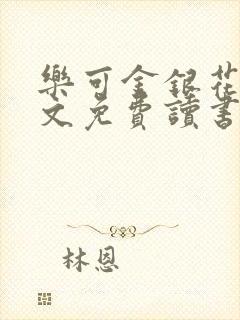 樂可金銀花
文免費讀書
林恩